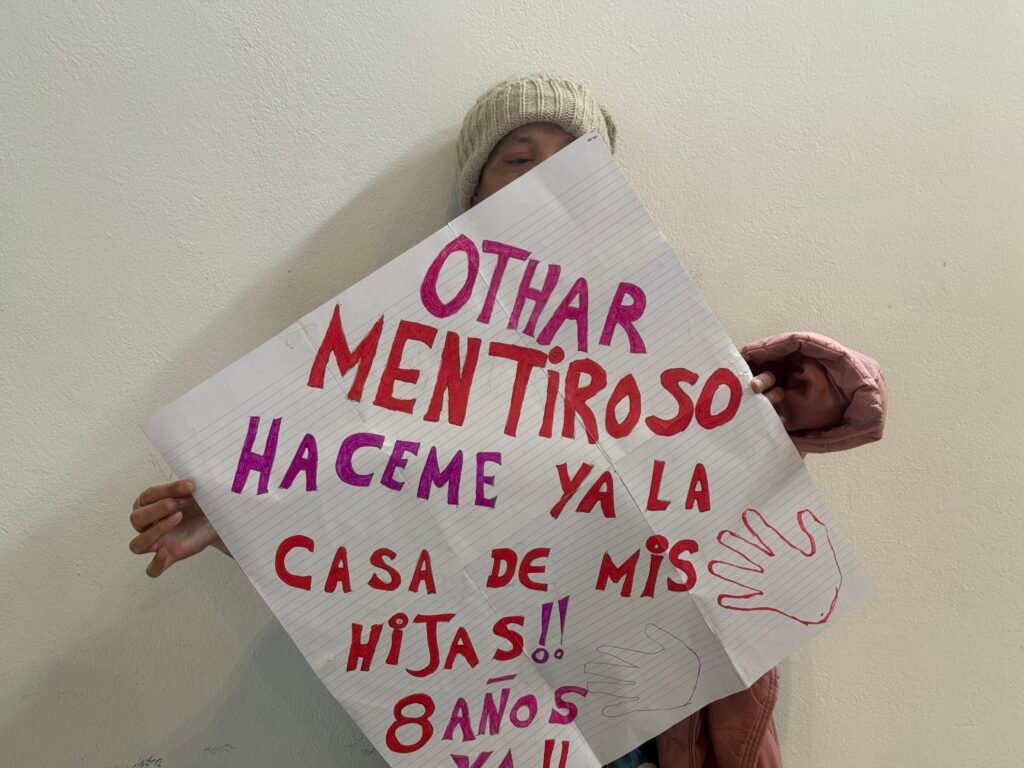 OTHAR
MENTIROSO
HACEME YA LA
CASA DE MIS
HIJAS!!
8 AÑOS
YA!!